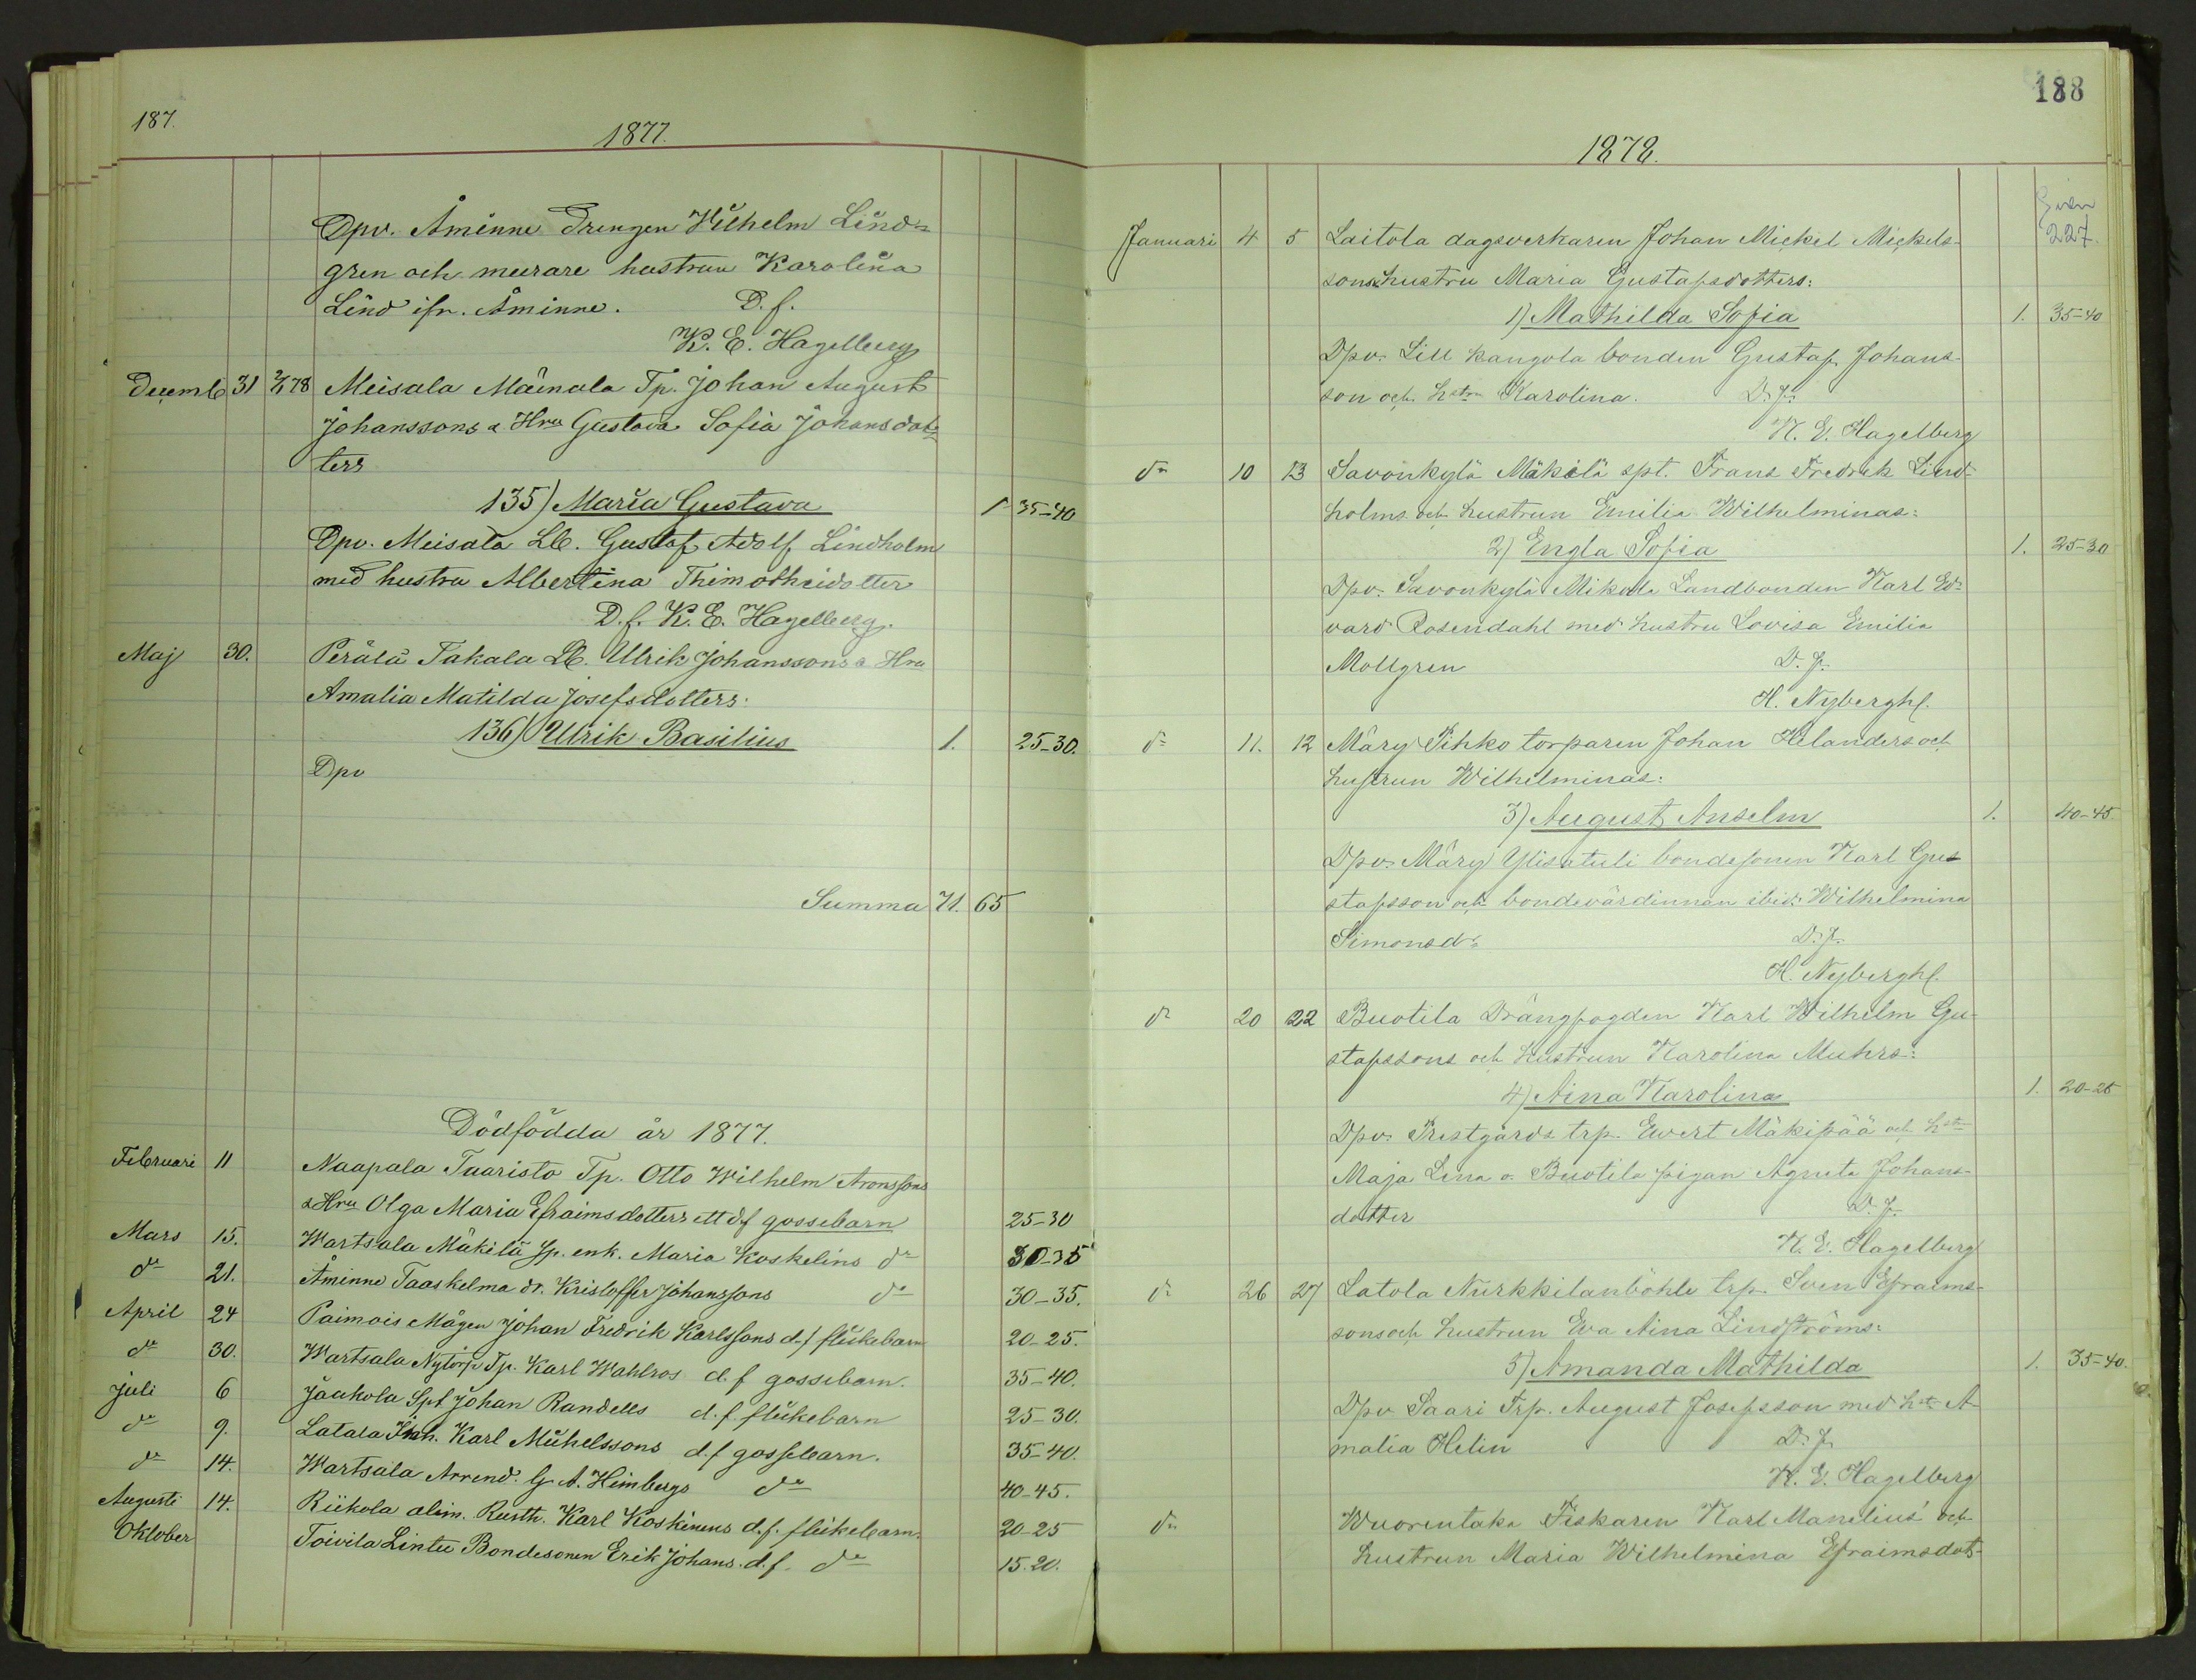 187.
1877.
Dpv. Åminne Drengen Wilhelm Lind=
gren och murare hustrun Karolina
Lind ifr. Åminne. D. f.
K. E. Hagelberg
Decemb 31 2/1 78 Meisala Mäinala Tp. Johan August
Johanssons & Hru Gustava Sofia Johansdot=
ters
135) Maria Gustava 1 35-40
Dpv. Meisala Lb. Gustaf Adolf Lindholm
med hustru Albertina Thimotheidotter
D. f. K. E. Hagelberg.
Maj 30. Perälä Takala Lb. Ulrik Johanssons & Hru
Amalia Matilda Josefsdotters:
136) Ulrik Basilius 1. 25-30.
Dpv
Summa 71. 65
Dödfödda år 1877.
Februari 11 Naapala Tuaristo Tp. Otto Wilhelm Aronssons
& Hru Olga Maria Efraimsdotters ett df gossebarn 25-30
Mars 15. Wartsala Mäkilä Sp. enk. Maria Koskelins do 30-35
do 21. Åminne Taaskelma dr. Kristoffer Johanssons do 30-35.
April 24 Paimois Mågen Johan Fredrik Karlssons d.f flickebarn 20-25.
do 30. Wartsala Nytorp Tp. Karl Wahlros d. f gossebarn. 35-40.
Juli 6 Jaakola Spt Johan Randells d. f. flickebarn 25-30.
do 9. Latala Karl Michelssons d. f gossebarn. 35-40.
do 14. Wartsala Arrend. G. A. Heimbergs do 40-45.
Augusti 14. Riikola Rusth. Karl Koskinens d. f. flickebarn. 20-25
Oktober Toivila Lintu Bondesonen Erik Johans. d. f. do 15.20.
188
1878.
227.
Januari 4 5 Laitola dagsverkaren Johan Mickel Mickels-
sons & hustru Maria Gustafsdotters:
1) Mathilda Sofia 1. 35-40
Dpv. Lill kangola bonden Gustaf Johans-
son och hstru Karolina. D. f.
K. E. Hagelberg
do 10 13 Savonkylä Mäkilä spt. Frans Fredrik Lind-
holms och hustrun Emilia Wilhelminas:
2) Engla Sofia 1. 25-30
Dpv. Savonkylä Mikola Landbonden Karl Ed-
vard Rosendahl med hustru Lovisa Emilia
Mollgren D. f.
H. Nybergh.
do 11. 12 Märy Pihko torparen Johan Helanders och
hustrun Wilhelminas:
3) August Anselm 1. 40-45
Dpv. Märy Ylisatuli bondesonen Karl Gu
stafsson och bondevärdinnan ibid. Wilhelmina
Simonsdr. D. f.
H. Nybergh.
do 20 22 Buotila Drängfogden Karl Wilhelm Gu-
stafssons och hustrun Karolina Muhrs:
4) Aina Karolina 1. 20-25
Dpv. Prestgårds trp. Evert Mäkipää och hstr
Maja Lena o. Buotila pigan Agneta Johans-
dotter D. f.
K. E. Hagelberg
do 26 27 Latola Nurkkilanböhle trp. Sven Efraims-
sons och hustrun Eva Aina Lindströms:
5) Amanda Mathilda 1. 35-40.
Dpv Saari Trp. August Josefsson med hstr A-
malia Helin D. f.
K. E. Hagelberg
do Wuorentaka Fiskaren Karl Manelius' och
hustrun Maria Wilhelmina Efraimsdot-